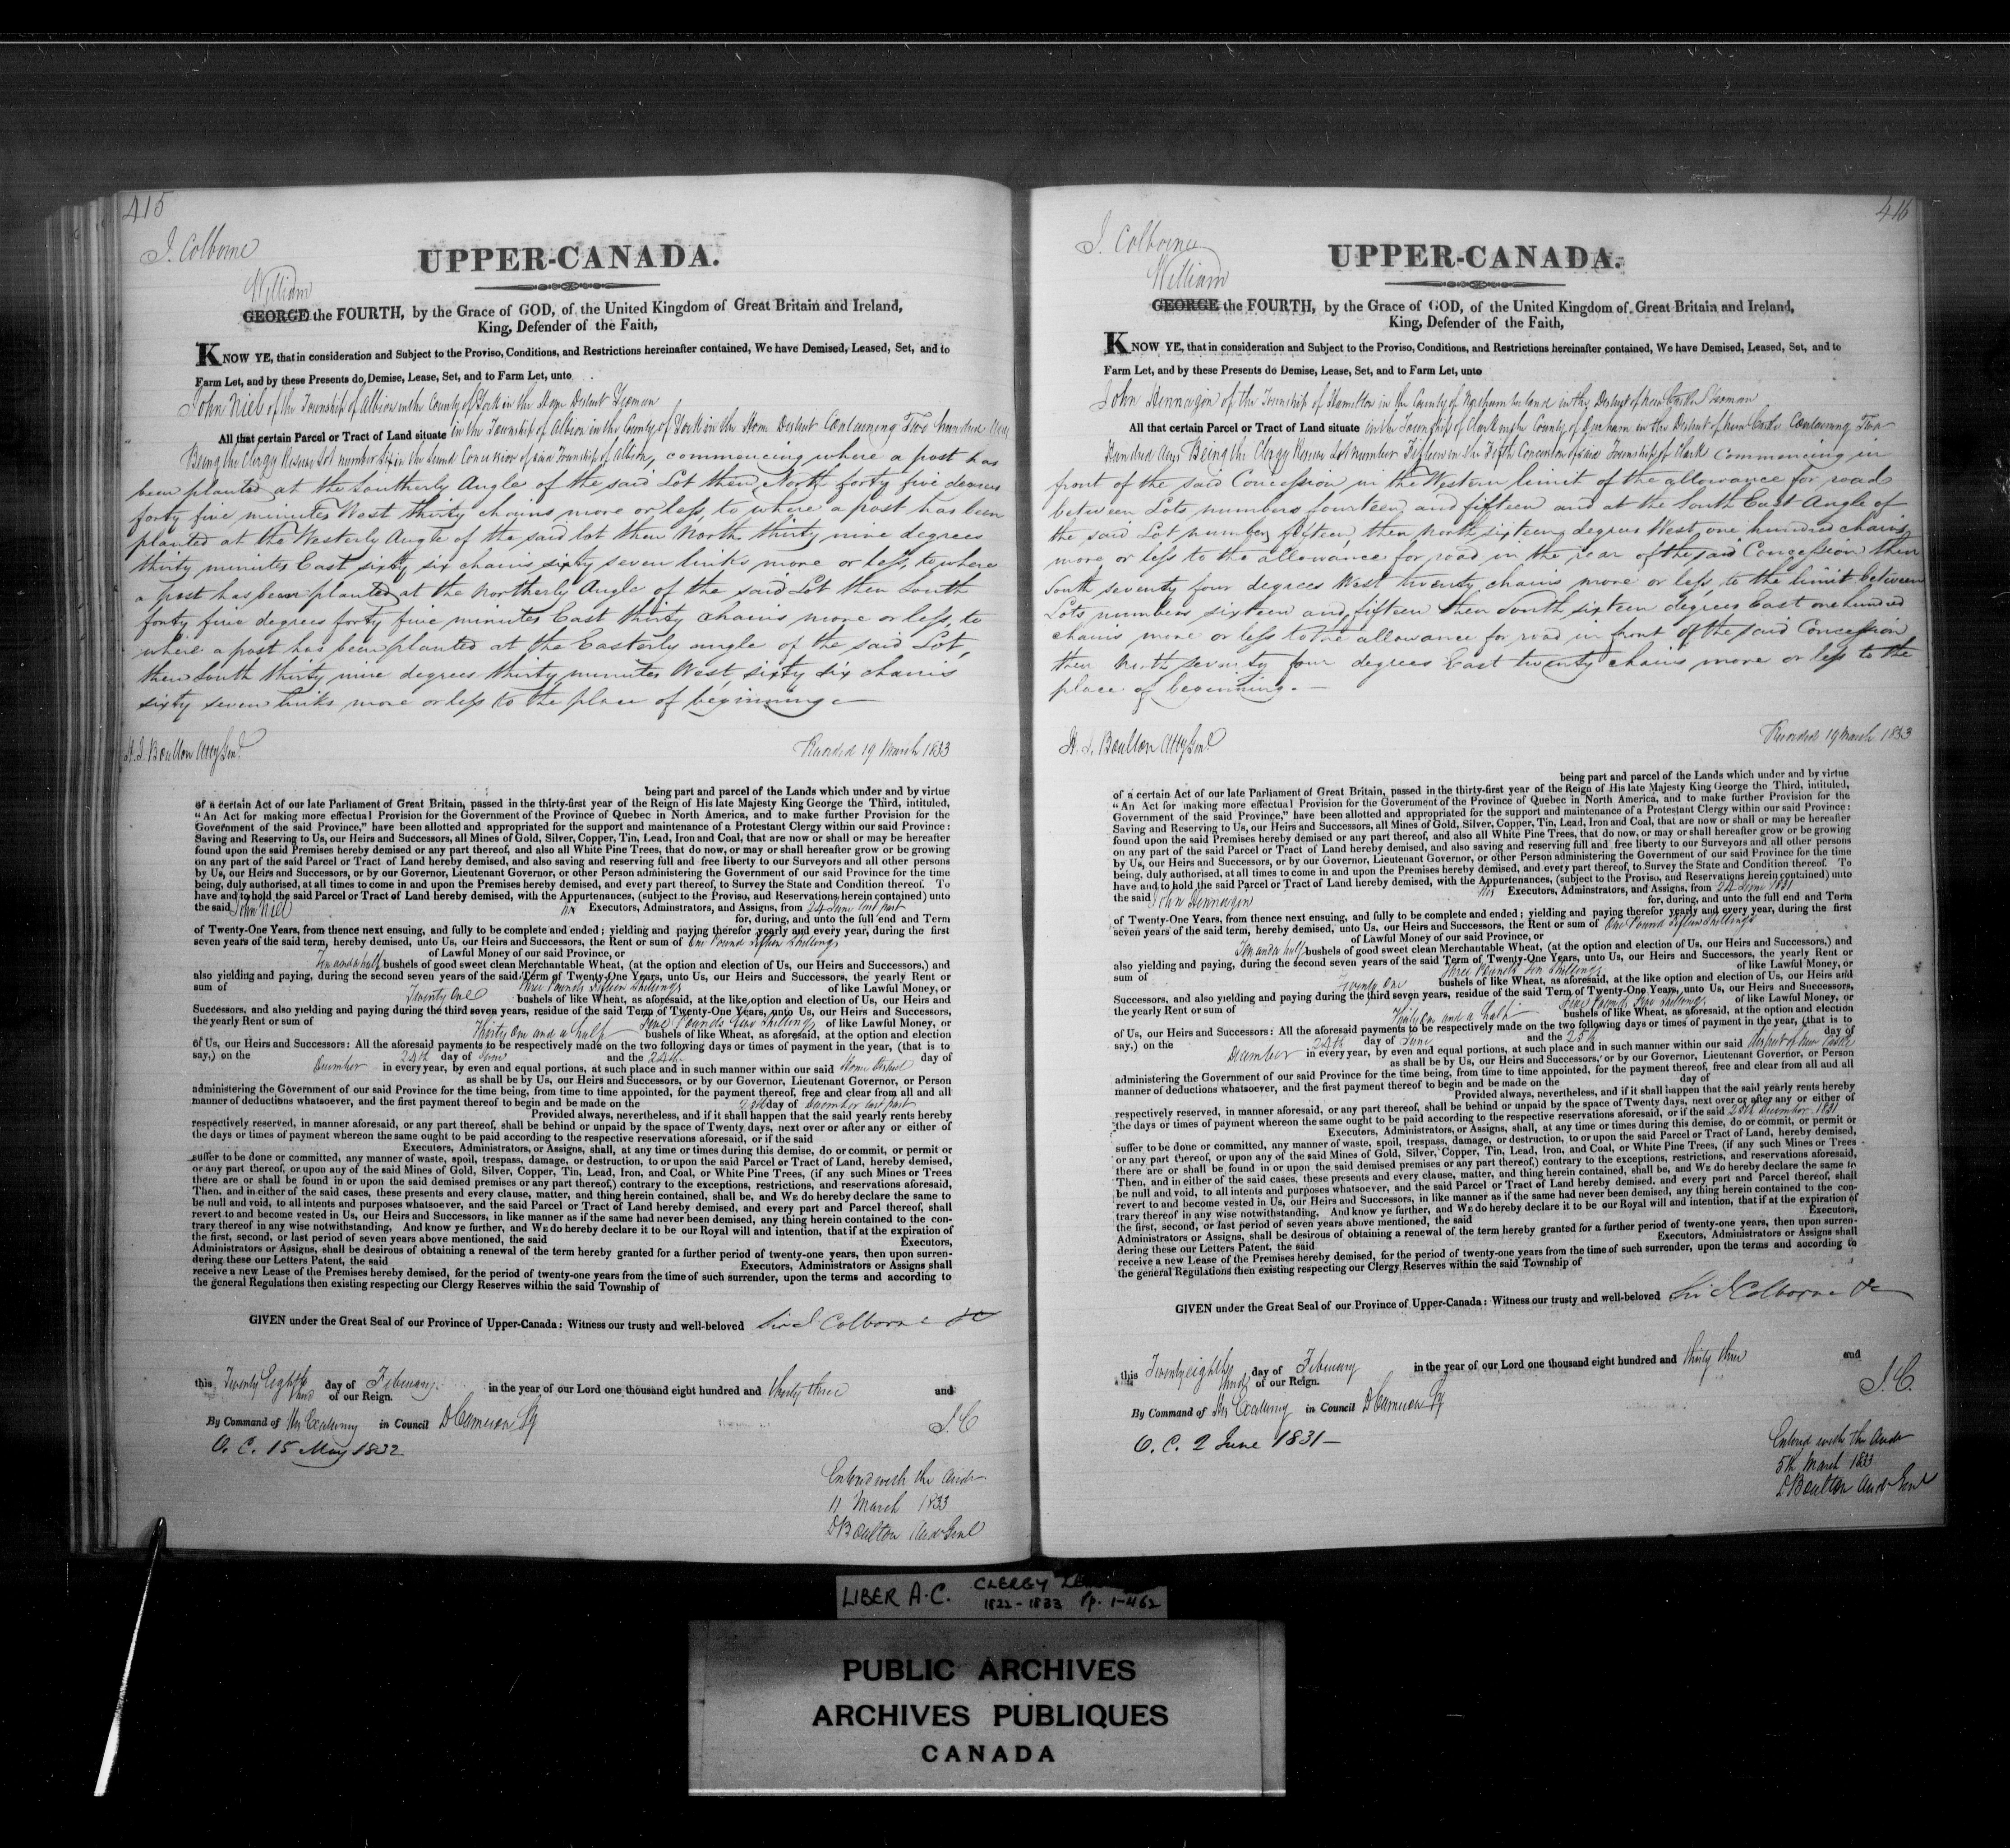 415
J. Colborne
UPPER-CANADA.
William
GEORGE the FOURTH, by the Grace of GOD, of the United Kingdom of Great Britain and Ireland,
King, Defender of the Faith,
KNOW YE, that in consideration and Subject to the Proviso, Conditions, and Restrictions hereinafter contained, We have Demised, Leased, Set, and to
Farm Let, and by these Presents do Demise, Lease, Set, and to Farm Let, unto
John Niel of the Township of Albion in the County of York in the Home District Yeoman
All that certain Parcel or Tract of Land situate in the Township of Albion in the County of York in the Home District Containing Two hundred Acres
Being the Clergy Reserve Lot number Six in the Second Concession of said Township of Albion, commencing where a post has
been planted at the Southerly Angle of the said Lot then North forty five degrees
forty five minutes West thirty chains more or less, to where a post has been
planted at the Westerly Angle of the said lot then North thirty nine degrees
thirty minutes East sixty six chains sixty seven links more or less, to where
a post has been planted at the Northerly Angle of the said Lot then South
forty five degrees forty five minutes East thirty chains more or less, to
where a post has been planted at the Easterly angle of the said Lot,
then South thirty nine degrees thirty minutes West, sixty six chains
sixty seven links more or less to the place of beginning
H. J. Boulton Atty Genl.
Recorded 19 March 1833
being part and parcel of the Lands which under and by virtue
of a certain Act of our late Parliament of Great Britain, passed in the thirty-first year of the Reign of His late Majesty King George the Third, intituled,
"An Act for making more effectual Provision for the Government of the Province of Quebec in North America, and to make further Provision for the
Government of the said Province," have been allotted and appropriated for the support and maintenance of a Protestant Clergy within our said Province:
Saving and Reserving to Us, our Heirs and Successors, all Mines of Gold, Silver, Copper, Tin, Lead, Iron and Coal, that are now or shall or may be hereafter
found upon the said Premises hereby demised or any part thereof, and also all White Pine Trees, that do now, or may or shall hereafter grow or be growing
on any part of the said Parcel or Tract of Land hereby demised, and also saving and reserving full and free liberty to our Surveyors and all other persons
by Us, our Heirs and Successors, or by our Governor, Lieutenant Governor, or other Person administering the Government of our said Province for the time
being, duly authorised, at all times to come in and upon the Premises hereby demised, and every part thereof, to Survey the State and Condition thereof. To
have and to hold the said Parcel or Tract of Land hereby demised, with the Appurtenances, (subject to the Proviso, and Reservations herein contained) unto
the said John Niel his Executors, Adminstrators, and Assigns, from 24 June last past
for, during, and unto the full end and Term
of Twenty-One Years, from thence next ensuing, and fully to be complete and ended; yielding and paying therefor yearly and every year, during the first
seven years of the said term, hereby demised, unto Us, our Heirs and Successors, the Rent or sum of One Pound Fifteen Shillings
of Lawful Money of our said Province, or
Ten and a half bushels of good sweet clean Merchantable Wheat, (at the option and election of Us, our Heirs and Successors,) and
also yielding and paying, during the second seven years of the said Term of Twenty-One Years, unto Us, our Heirs and Successors, the yearly Rent or
sum of Three Pounds Fifteen Shillings of like Lawful Money, or
Twenty One bushels of like Wheat, as aforesaid, at the like option and election of Us, our Heirs and
Successors, and also yielding and paying during the third seven years, residue of the said Term of Twenty-One Years, unto Us, our Heirs and Successors,
the yearly Rent or sum of Five Pounds Five Shillings of like Lawful Money, or
Thirty One and a half bushels of like Wheat, as aforesaid, at the option and election
of Us, our Heirs and Successors: All the aforesaid payments to be respectively made on the two following days or times of payment in the year, (that is to
say,) on the 24th day of June and the 24th day of
December in every year, by even and equal portions, at such place and in such manner within our said Home District
as shall be by Us, our Heirs and Successors, or by our Governor, Lieutenant Governor, or Person
administering the Government of our said Province for the time being, from time to time appointed, for the payment thereof, free and clear from all and all
manner of deductions whatsoever, and the first payment thereof to begin and be made on the 25th day of December last past
Provided always, nevertheless, and if it shall happen that the said yearly rents hereby
respectively reserved, in manner aforesaid, or any part thereof, shall be behind or unpaid by the space of Twenty days, next over or after any or either of
the days or times of payment whereon the same ought to be paid according to the respective reservations aforesaid, or if the said
Executors, Administrators, or Assigns, shall, at any time or times during this demise, do or commit, or permit or
suffer to be done or committed, any manner of waste, spoil, trespass, damage, or destruction, to or upon the said Parcel or Tract of Land, hereby demised,
or any part thereof, or upon any of the said Mines of Gold, Silver, Copper, Tin, Lead, Iron, and Coal, or White Pine Trees, (if any such Mines or Trees
there are or shall be found in or upon the said demised premises or any part thereof,) contrary to the exceptions, restrictions, and reservations aforesaid,
Then, and in either of the said cases, these presents and every clause, matter, and thing herein contained, shall be, and WE do hereby declare the same to
be null and void, to all intents and purposes whatsoever, and the said Parcel or Tract of Land hereby demised, and every part and Parcel thereof, shall
revert to and become vested in Us, our Heirs and Successors, in like manner as if the same had never been demised, any thing herein contained to the con-
trary thereof in any wise notwithstanding, And know ye further, and WE do hereby declare it to be our Royal will and intention, that if at the expiration of
the first, second, or last period of seven years above mentioned, the said Executors,
Administrators or Assigns, shall be desirous of obtaining a renewal of the term hereby granted for a further period of twenty-one years, then upon surren-
dering these our Letters Patent, the said Executors, Administrators or Assigns shall
receive a new Lease of the Premises hereby demised, for the period of twenty-one years from the time of such surrender, upon the terms and according to
the general Regulations then existing respecting our Clergy Reserves within the said Township of
GIVEN under the Great Seal of our Province of Upper-Canada: Witness our trusty and well-beloved Sir J Colborne &c
this Twenty Eighth day of February in the year of our Lord one thousand eight hundred and thirty three and
third of our Reign.
By Command of His Excellency in Council D Cameron Sy
J. C
O. C. 15 May 1832
Entered with the Audr
11 March 1833
D Boulton Audr Genl
416
J. Colborne
UPPER-CANADA.
William
GEORGE the FOURTH, by the Grace of GOD, of the United Kingdom of Great Britain and Ireland,
King, Defender of the Faith,
KNOW YE, that in consideration and Subject to the Proviso, Conditions, and Restrictions hereinafter contained, We have Demised, Leased, Set, and to
Farm Let, and by these Presents do Demise, Lease, Set, and to Farm Let, unto
John Hennagon of the Township of Hamilton in the County of Northumberland in the District of New Castle Yeoman
All that certain Parcel or Tract of Land situate in the Township of Clark in the County of Durham in the District of New Castle Containing Two
Hundred Acres Being the Clergy Reserve Lot number Fifteen in the Fifth Concession of said Township of Clark Commencing in
front of the said Concession in the Western limit of the allowance for road
between Lots numbers fourteen and fifteen and at the South East Angle of
the said Lot number fifteen, then North sixteen degrees West one hundred chains
more or less to the allowance for road in the rear of the said Concession then
South seventy four degrees West twenty chains more or less, to the limit between
Lots numbers sixteen and fifteen then South sixteen degrees East one hundred
chains more or less to the allowance for road in front of the said Concession
then North seventy four degrees East twenty chains more or less to the
place of beginning.
H. J. Boulton Atty Genl
Recorded 19 March 1833
being part and parcel of the Lands which under and by virtue
of a certain Act of our late Parliament of Great Britain, passed in the thirty-first year of the Reign of His late Majesty King George the Third, intituled,
"An Act for making more effectual Provision for the Government of the Province of Quebec in North America, and to make further Provision for the
Government of the said Province," have been allotted and appropriated for the support and maintenance of a Protestant Clergy within our said Province:
Saving and Reserving to Us, our Heirs and Successors, all Mines of Gold, Silver, Copper, Tin, Lead, Iron and Coal, that are now or shall or may be hereafter
found upon the said Premises hereby demised or any part thereof, and also all White Pine Trees, that do now, or may or shall hereafter grow or be growing
on any part of the said Parcel or Tract of Land hereby demised, and also saving and reserving full and free liberty to our Surveyors and all other persons
by Us, our Heirs and Successors, or by our Governor, Lieutenant Governor, or other Person administering the Government of our said Province for the time
being, duly authorised, at all times to come in and upon the Premises hereby demised, and every part thereof, to Survey the State and Condition thereof. To
have and to hold the said Parcel or Tract of Land hereby demised, with the Appurtenances, (subject to the Proviso, and Reservations herein contained) unto
the said John Hennagon his Executors, Adminstrators, and Assigns, from 24 June 1831
for, during, and unto the full end and Term
of Twenty-One Years, from thence next ensuing, and fully to be complete and ended; yielding and paying therefor yearly and every year, during the first
seven years of the said term, hereby demised, unto Us, our Heirs and Successors, the Rent or sum of One Pound Fifteen Shillings
of Lawful Money of our said Province, or
Ten and a half bushels of good sweet clean Merchantable Wheat, (at the option and election of Us, our Heirs and Successors,) and
also yielding and paying, during the second seven years of the said Term of Twenty-One Years, unto Us, our Heirs and Successors, the yearly Rent or
sum of Three Pounds Ten Shillings of like Lawful Money, or
Twenty One bushels of like Wheat, as aforesaid, at the like option and election of Us, our Heirs and
Successors, and also yielding and paying during the third seven years, residue of the said Term of Twenty-One Years, unto Us, our Heirs and Successors,
the yearly Rent or sum of Five Pounds Five Shillings of like Lawful Money, or
Thirty One and a half bushels of like Wheat, as aforesaid, at the option and election
of Us, our Heirs and Successors: All the aforesaid payments to be respectively made on the two following days or times of payment in the year, (that is to
say,) on the 24th day of June and the 25th day of
December in every year, by even and equal portions, at such place and in such manner within our said District of New Castle
as shall be by Us, our Heirs and Successors, or by our Governor, Lieutenant Governor, or Person
administering the Government of our said Province for the time being, from time to time appointed, for the payment thereof, free and clear from all and all
manner of deductions whatsoever, and the first payment thereof to begin and be made on the day of
Provided always, nevertheless, and if it shall happen that the said yearly rents hereby
respectively reserved, in manner aforesaid, or any part thereof, shall be behind or unpaid by the space of Twenty days, next over or after any or either of
the days or times of payment whereon the same ought to be paid according to the respective reservations aforesaid, or if the said 25th December 1831
Executors, Administrators, or Assigns, shall, at any time or times during this demise, do or commit, or permit or
suffer to be done or committed, any manner of waste, spoil, trespass, damage, or destruction, to or upon the said Parcel or Tract of Land, hereby demised,
or any part thereof, or upon any of the said Mines of Gold, Silver, Copper, Tin, Lead, Iron, and Coal, or White Pine Trees, (if any such Mines or Trees
there are or shall be found in or upon the said demised premises or any part thereof,) contrary to the exceptions, restrictions, and reservations aforesaid,
Then, and in either of the said cases, these presents and every clause, matter, and thing herein contained, shall be, and WE do hereby declare the same to
be null and void, to all intents and purposes whatsoever, and the said Parcel or Tract of Land hereby demised. and every part and Parcel thereof, shall
revert to and become vested in Us, our Heirs and Successors, in like manner as if the same had never been demised, any thing herein contained to the con-
trary thereof in any wise notwithstanding, And know ye further, and WE do hereby declare it to be our Royal will and intention, that if at the expiration of
the first, second, or last period of seven years above mentioned, the said Executors,
Administrators or Assigns, shall be desirous of obtaining a renewal of the term hereby granted for a further period of twenty-one years, then upon surren-
dering these our Letters Patent, the said Executors, Administrators or Assigns shall
receive a new Lease of the Premises hereby demised, for the period of twenty-one years from the time of such surrender, upon the terms and according to
the general Regulations then existing respecting our Clergy Reserves within the said Township of
GIVEN under the Great Seal of our Province of Upper-Canada: Witness our trusty and well-beloved Sir J Colborne &c
this Twenty eighth day of February in the year of our Lord one thousand eight hundred and thirty three and
third of our Reign.
J. C.
By Command of His Excellency in Council D Cameron Sy
O. C. 2 June 1831
Entered with the Audr
5th March 1833
D Boulton Audr Genl
LIBER A.C. CLERGY
1822-1833 Pp. 1-462
PUBLIC ARCHIVES
ARCHIVES PUBLIQUES
CANADA